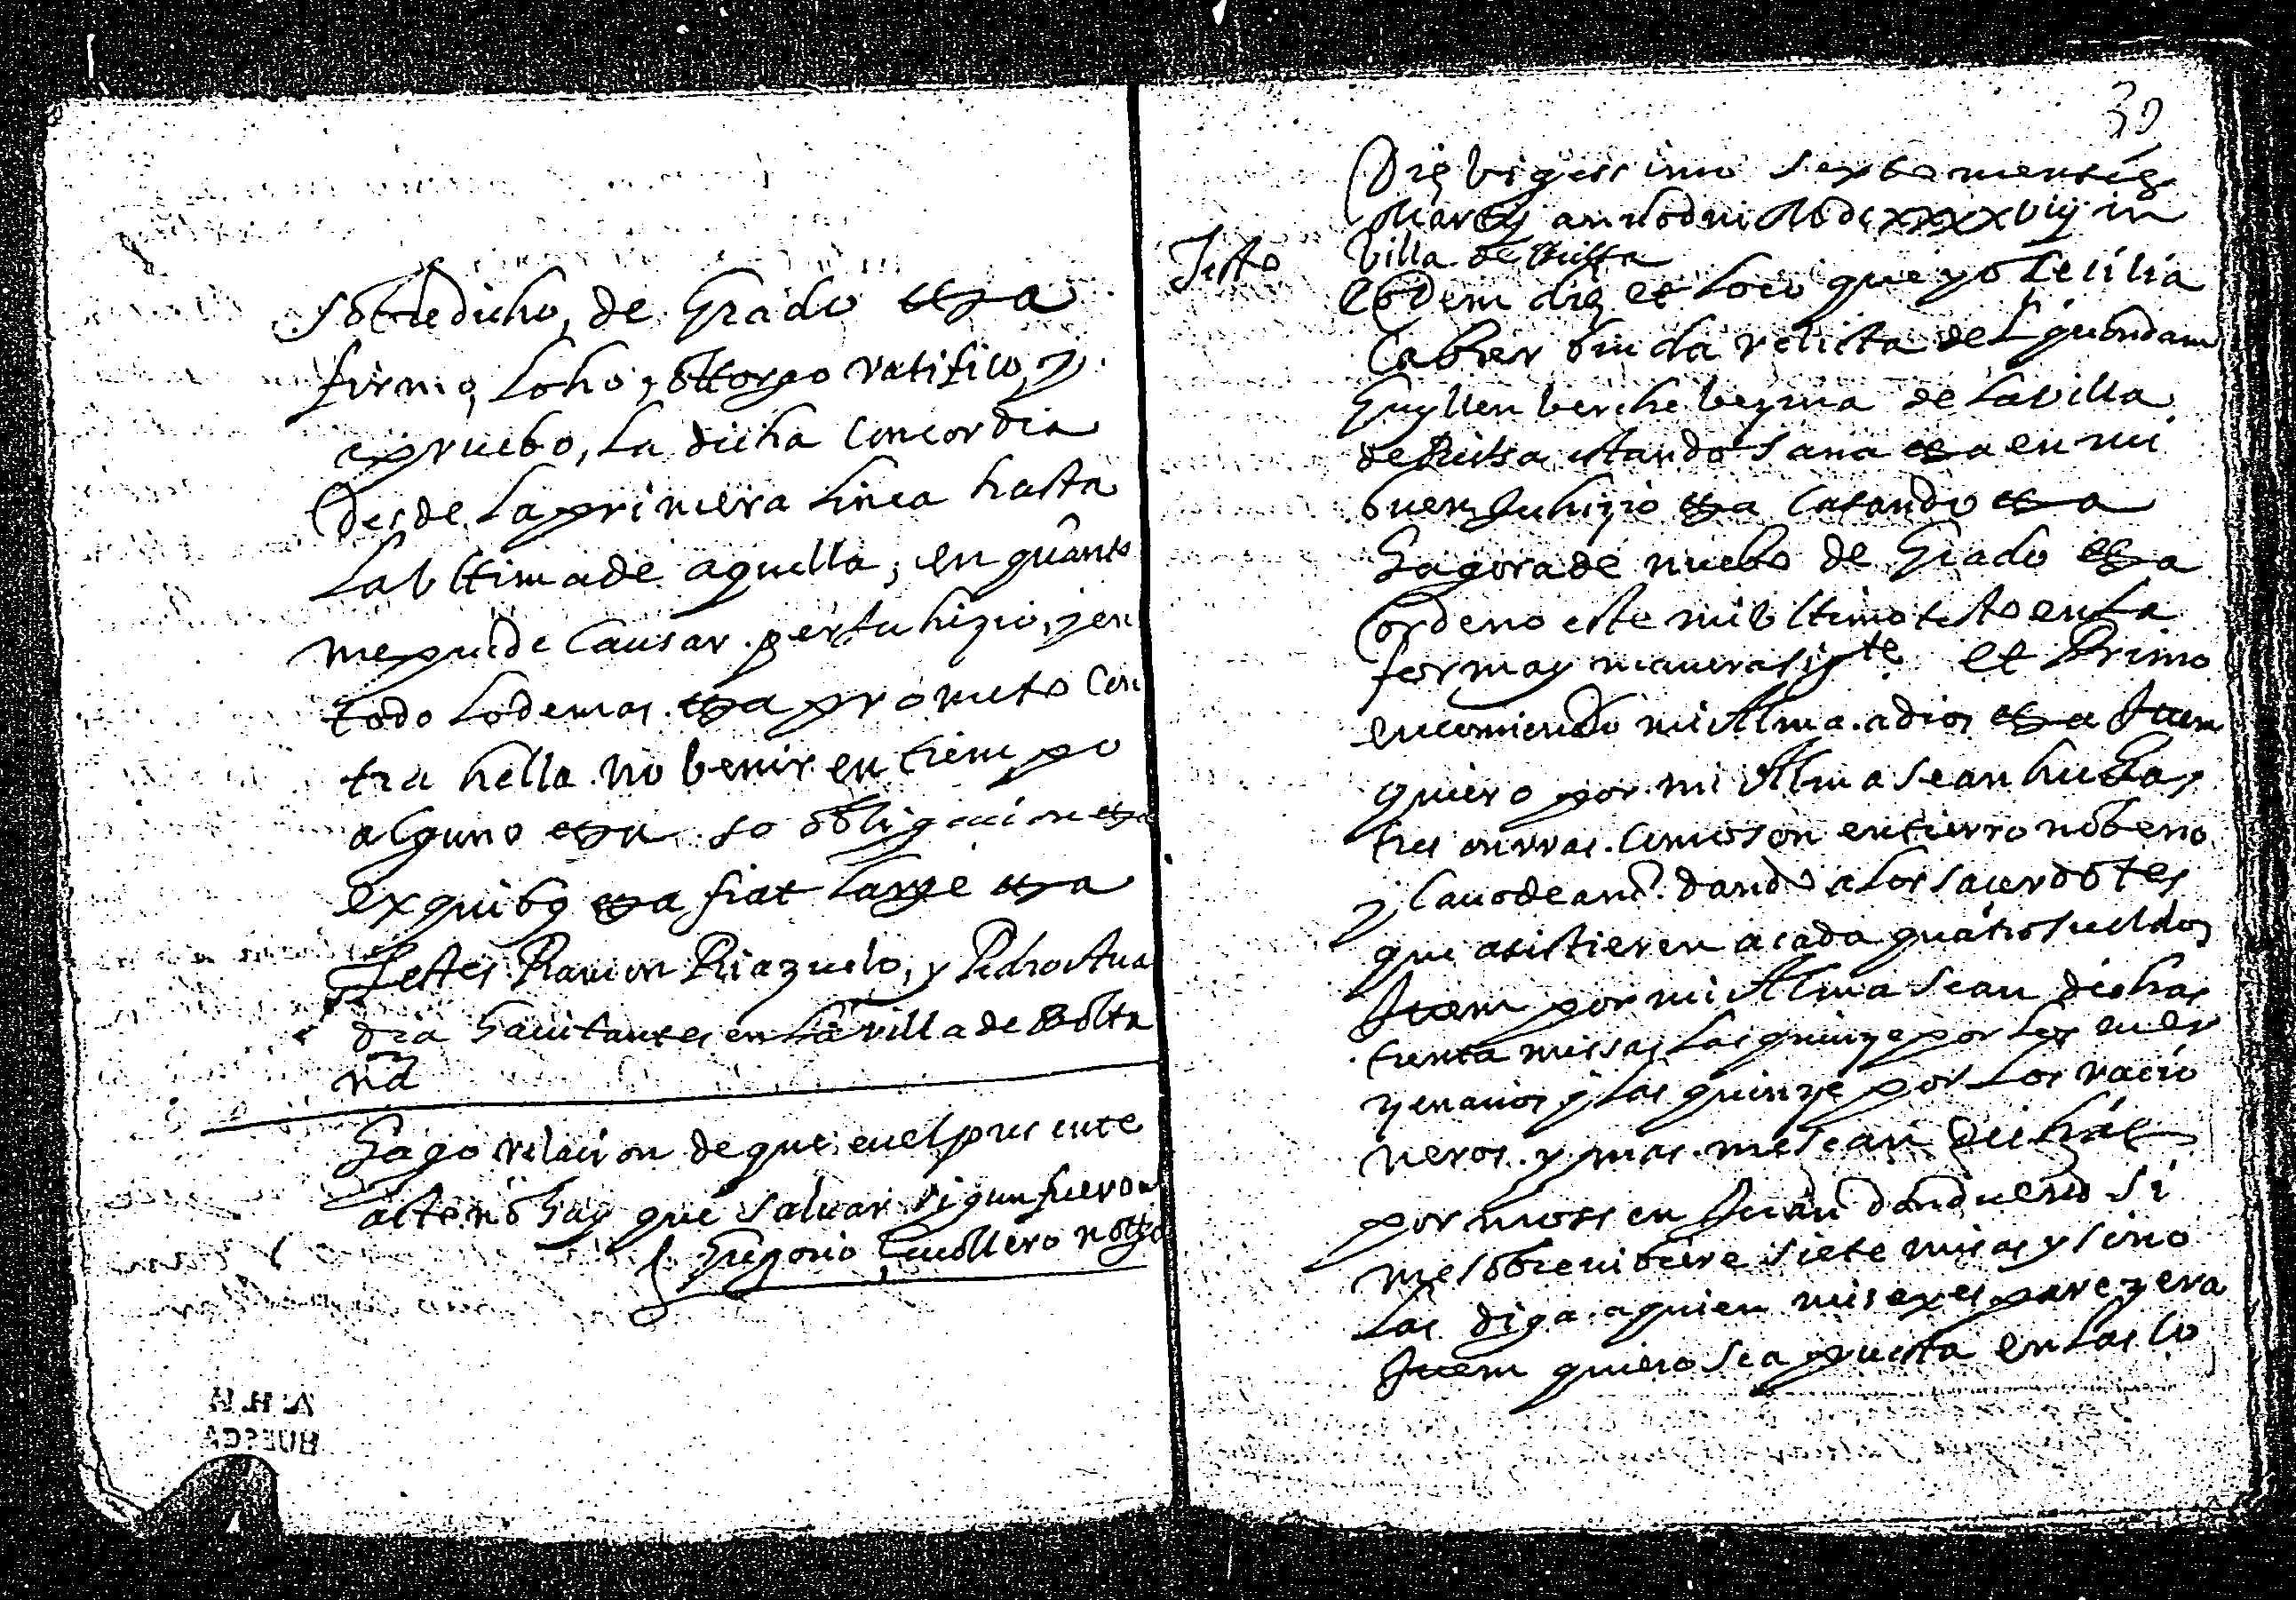 sobredicho, de Grado etza
firmo, loho, ottorgo ratifico, y
apruebo, la dicha concordia
desde la primera linea hasta
la ulttima de aquella, en quanto
me puede causar perjuhizio, y en
todo lo demas etza prometo con
tra hella no benir en tiempo
alguno etza so obligacion etza
ex quibus etza fiat large etza
Testes Ramon Riazuelo, y Pedro
dra havitantes en la villa de Bolta
na
Hago relacion de que en el presente
acte no hay que salvar sigun fuero
Gregorio notto
30
Die bigessimo sexto mensis
Marcij anno dni MDCXXXXVIIJ in
villa de
Testo
Eodem die et loco que yo Cecilia
Cabrer biuda relicta del quondam
Guyllen de la villa
de estando sana etza en mi
buen juhizio etza casando etza
Hagora de nuebo de Grado etza
ordeno este mi ulttimo testo en la
forma y manera sigte et Primo
encomiendo mi Alma a dios etza Item
quiero por mi Alma sean hechas
tres onrras como son entierro nobeno
y cavo de año dando a los sacerdotes
que asistieren a cada quatro sueldos
Item por mi Alma sean dichas
trenta missas las quinze por los
y las quinze por los racio
neros y mas me sean dichas
por mossen Juan si
me sobrevibiere siete misas y sino
las diga a quien mis exes parezera
Item quiero sea puesta en las co
A.H.N
HUESCA